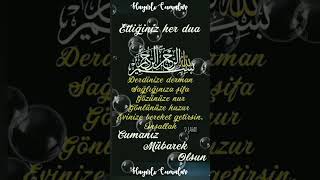 Hayırlı Cumalar
Ettiğiniz her dua
بسم الله الرحمن الرحيم
Derdinize derman
Sağlığınıza şifa
Gözünüze nur
Gönlünüze huzur
Evinize bereket getirsin.
İnşallah
Cumanız
Mübarek
Olsun
Hayırlı Cumalar